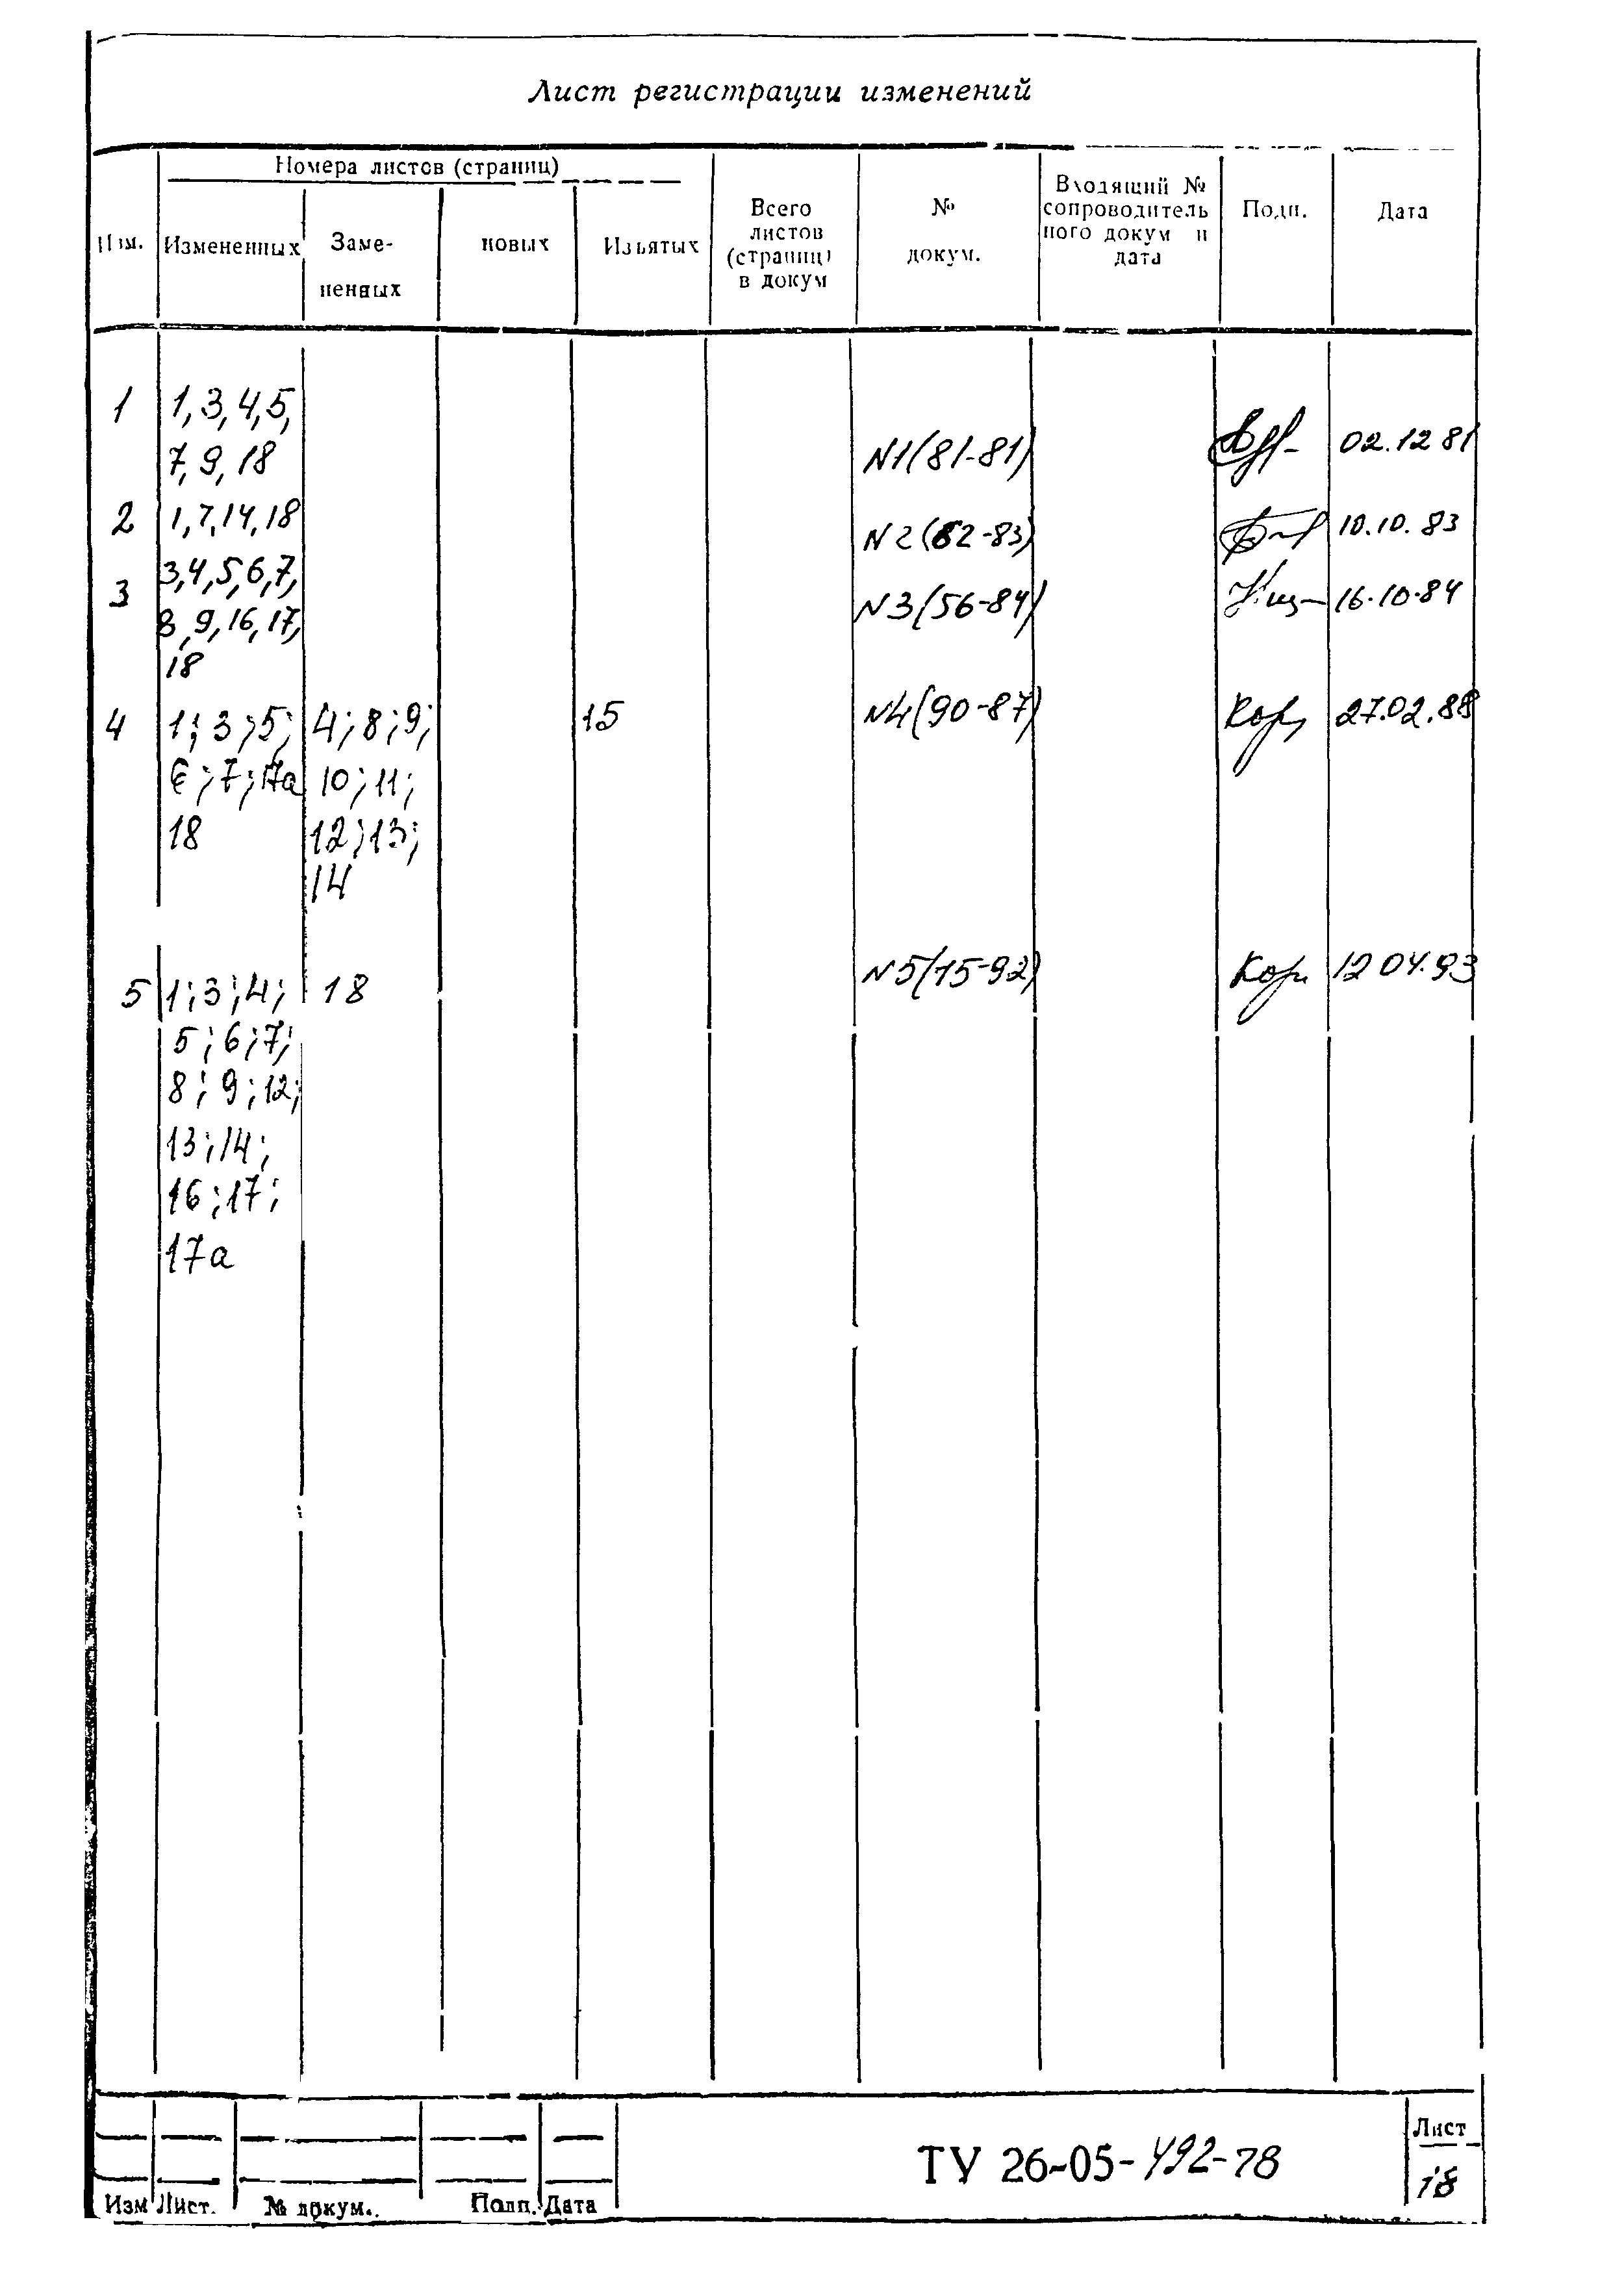 Лист регистрации изменений
Номера листов (страниц)
Изм.
Измененных
Заме-
ненных
новых
Изъятых
Всего
листов
(страниц)
в докум
№
докум.
Входящий №
сопроводитель
ного докум и
дата
Подп.
Дата
1 1,3,4,5,
7,9,18 N1(81-81) 02.12 81
2 1,7,14,18 N2(82-83) 10.10.83
3 3,4,5,6,7,
8,9,16,17, N3(56-84) 16.10.84
18
4 1;3;5; 4;8;9; 15 N4(90-87) Кор 27.02.88
6;7;17а 10;11;
18 12;13;
14
5 1;3;4; 18 N5(15-92) Кор 12 04.93
5;6;7;
8;9;12;
13;14;
16;17;
17а
ТУ 26-05-492-78
Лист
18
Изм Лист. № докум. Подп. Дата